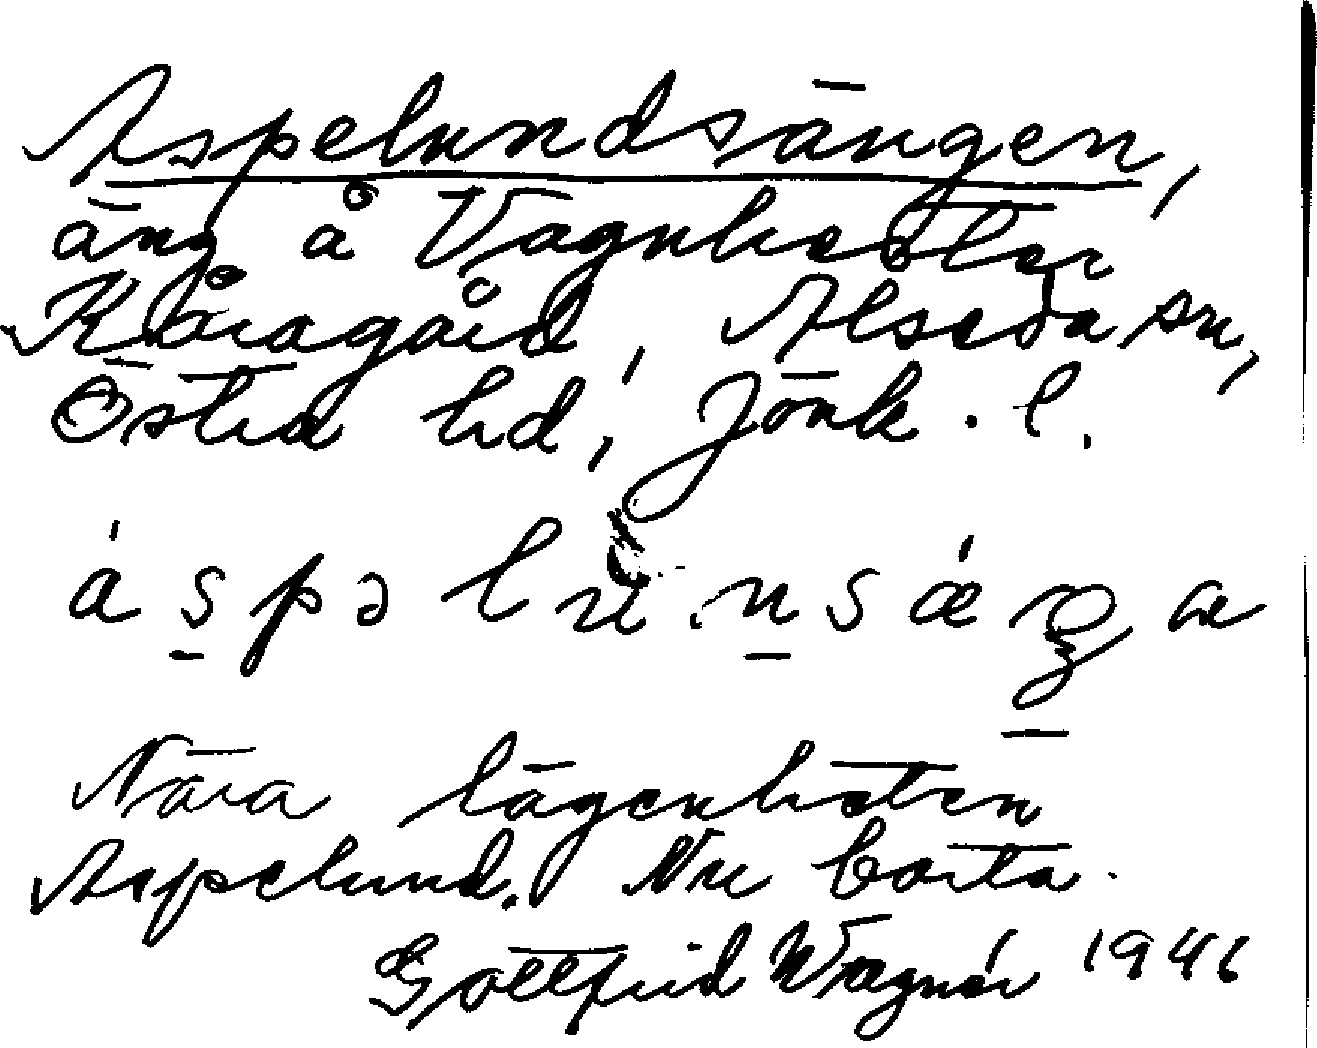 Aspelundsängen,
äng å Vagnhester
Kåragård, Alseda sn,
Östra hd, Jönk. l.
Nära lägenheten
Aspelund. Nu borta.
Gottfrid Wagnér 1946